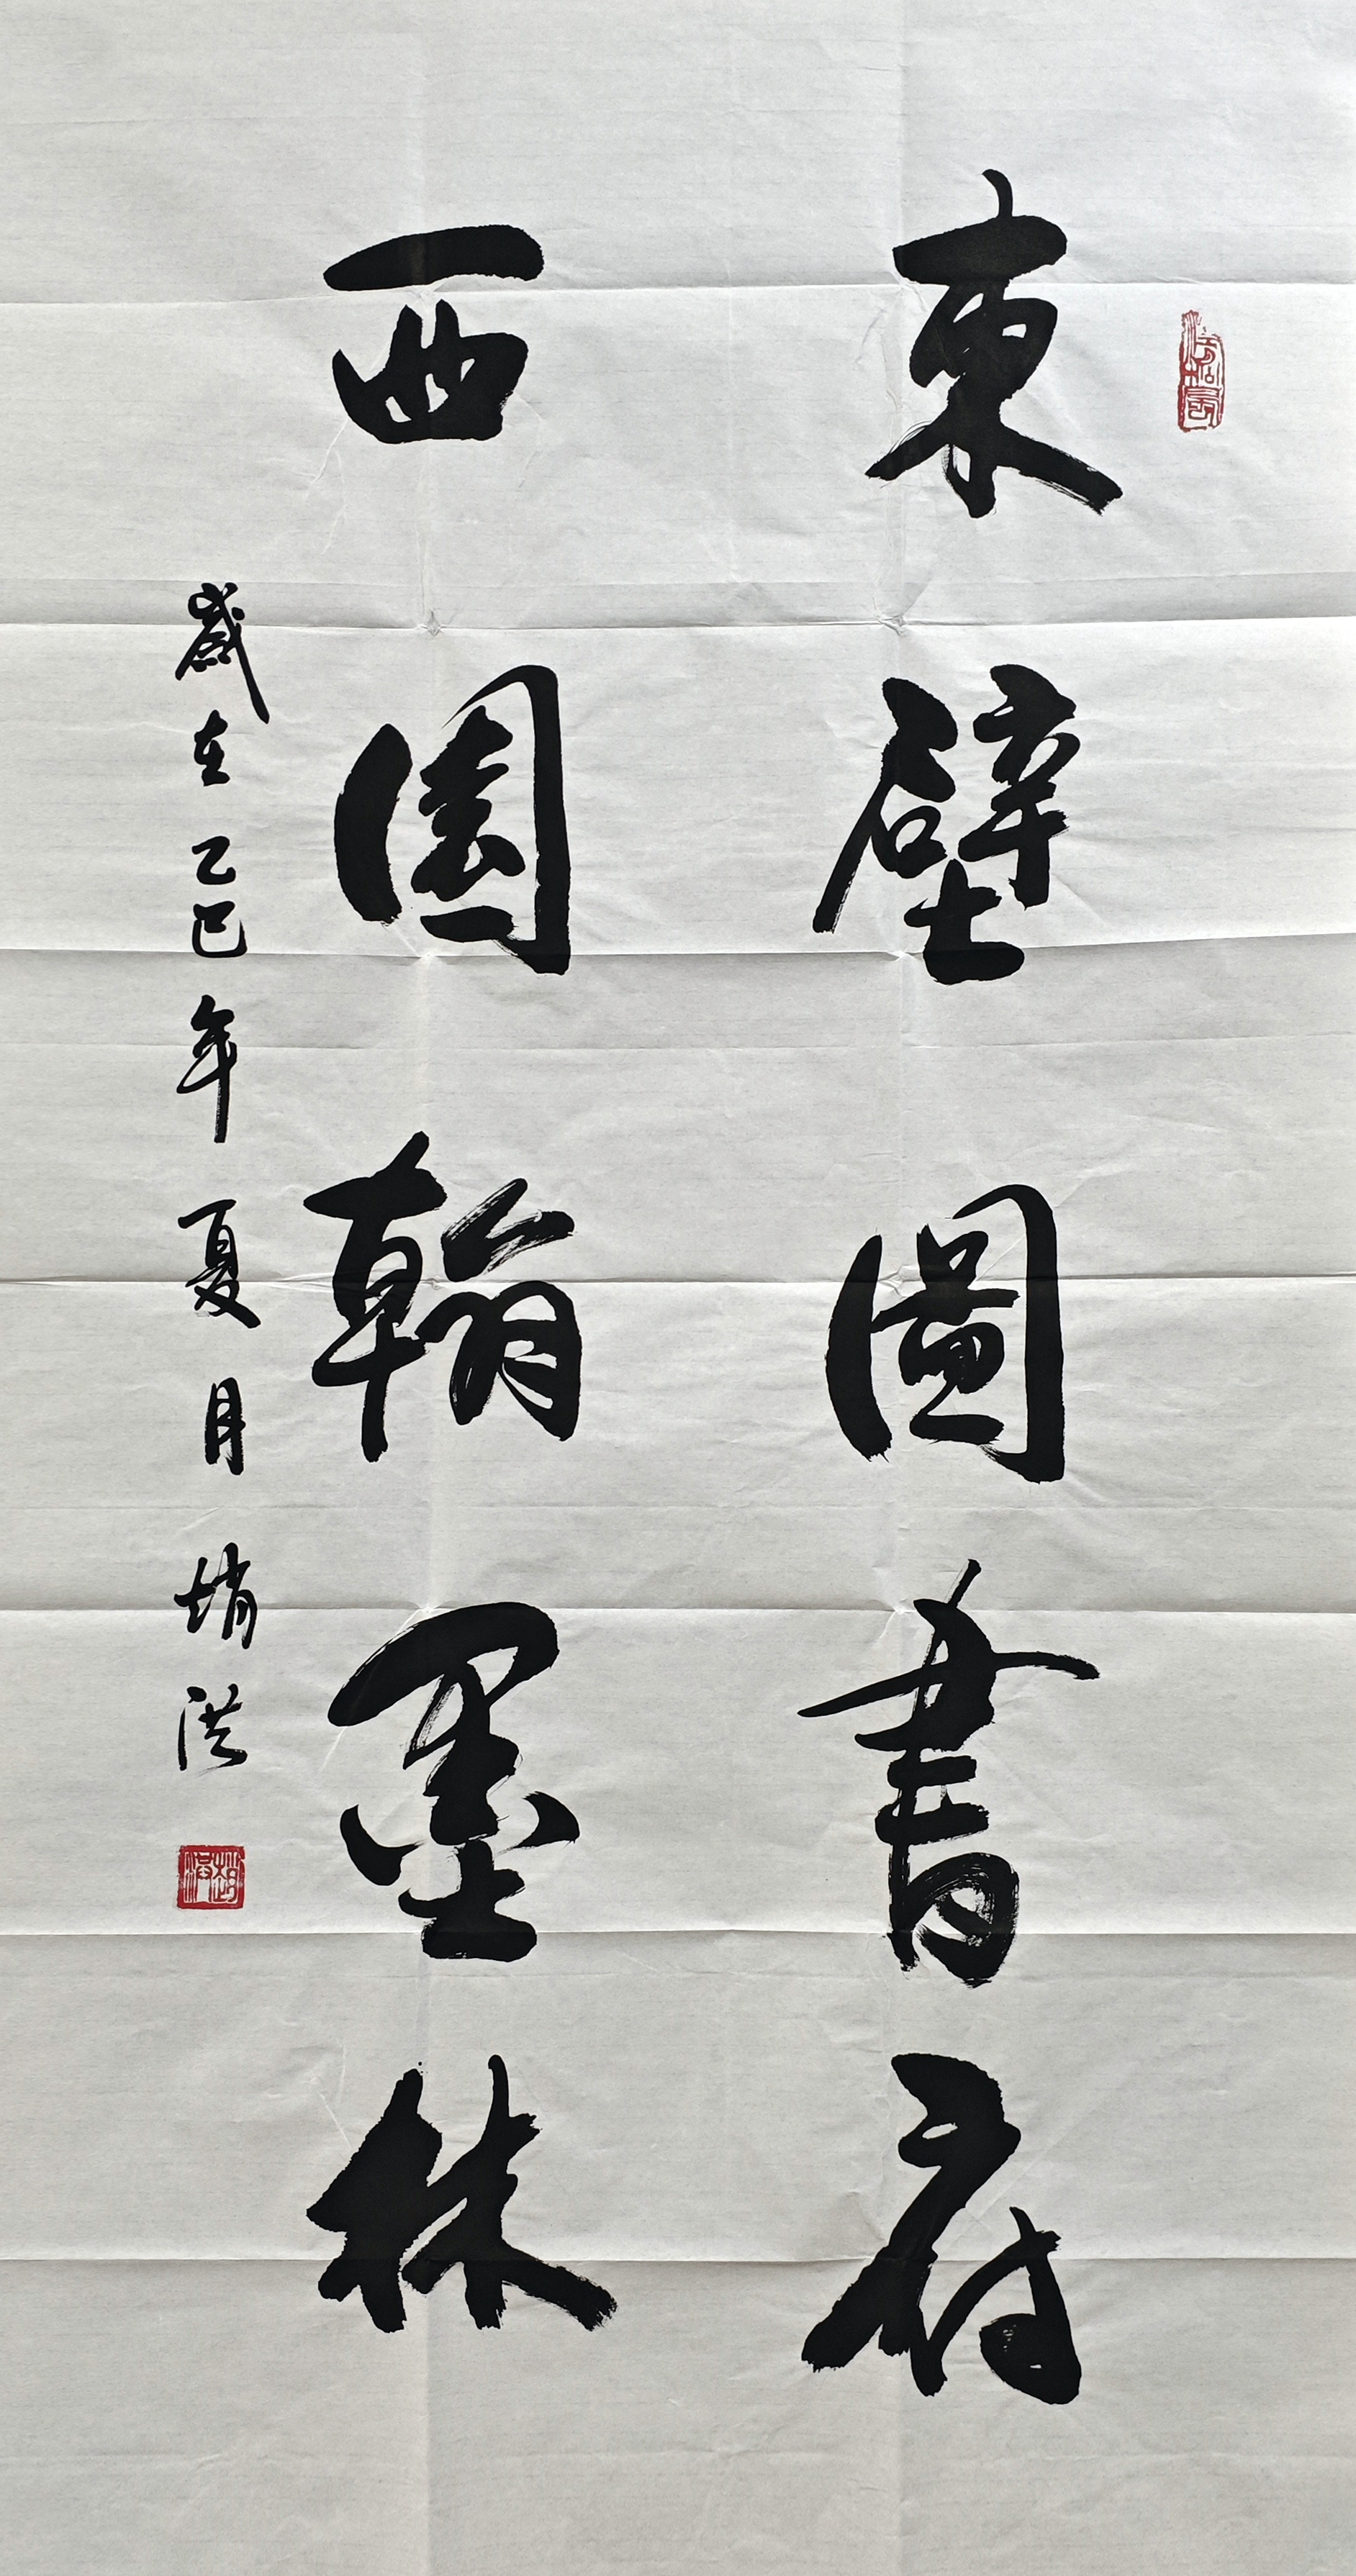 東壁圖書府
西園翰墨林
歲在乙巳年夏月 趙洪